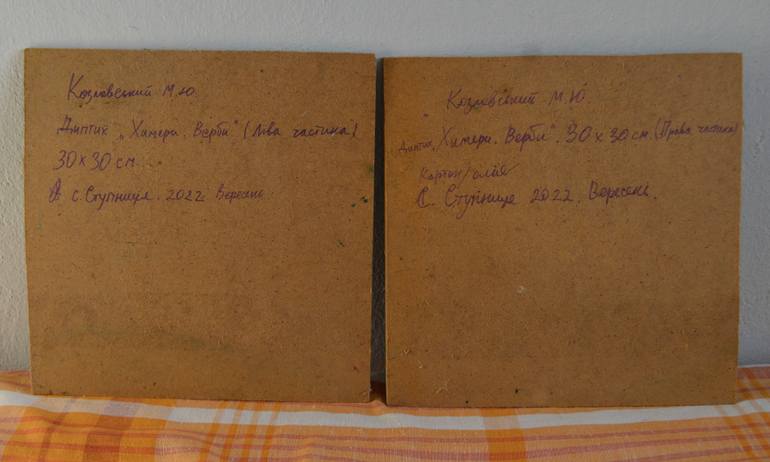 Козловський М.Ю.
Диптих „Химери. Верби" (Ліва частина)
30х30 см
с. Ступниця. 2022. Вересень
Козловський М.Ю.
Диптих „Химери. Верби". 30х30 см. (Права частина)
Картон/олія
С. Ступниця 2022. Вересень.